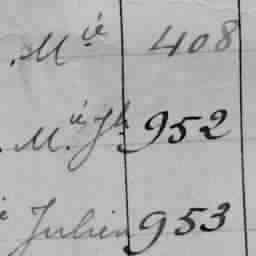 Mié 408
Mié Jh 952
Julien 953